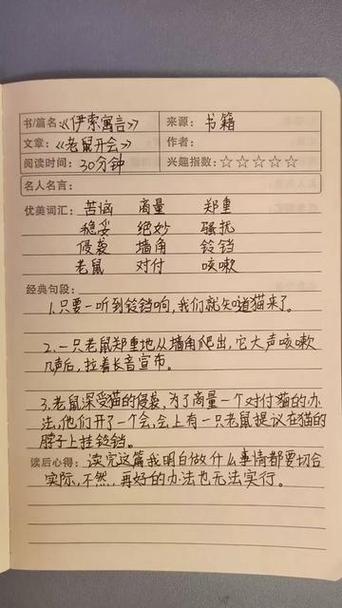 书/篇名:《伊索寓言》 来源: 书籍
文章:《老鼠开会》 作者:
阅读时间: 30分钟 兴趣指数:☆☆☆☆☆
名人名言:
优美词汇: 苦恼 商量 郑重
稳妥 绝妙 骚扰
侵袭 墙角 铃铛
老鼠 对付 咳嗽
经典句段:
1.只要一听到铃铛响,我们就知道猫来了。
2.一只老鼠郑重地从墙角爬出,它大声咳嗽
几声后,拉着长音宣布。
3.老鼠深受猫的侵袭,为了商量一个对付猫的办
法,他们开了一个会,会上有一只老鼠提议在猫的
脖子上挂铃铛。
读后心得: 读完这篇我明白做什么事情都要切合
实际,不然,再好的办法也无法实行。